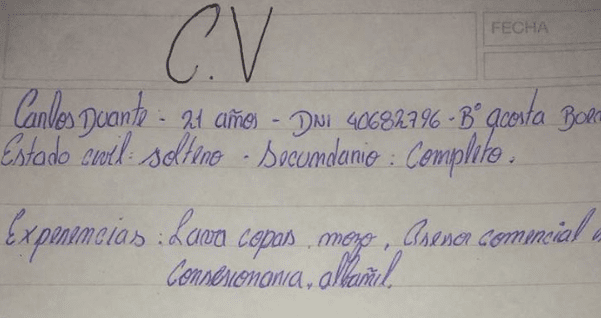 C.V
FECHA
Carlos Duarte - 21 años - DNI 40682796 - B° acosta
Estado civil: soltero - Secundario: Completo.
Experiencias: Lava copas, mozo, Asesor comercial
Consesionaria, albañil.